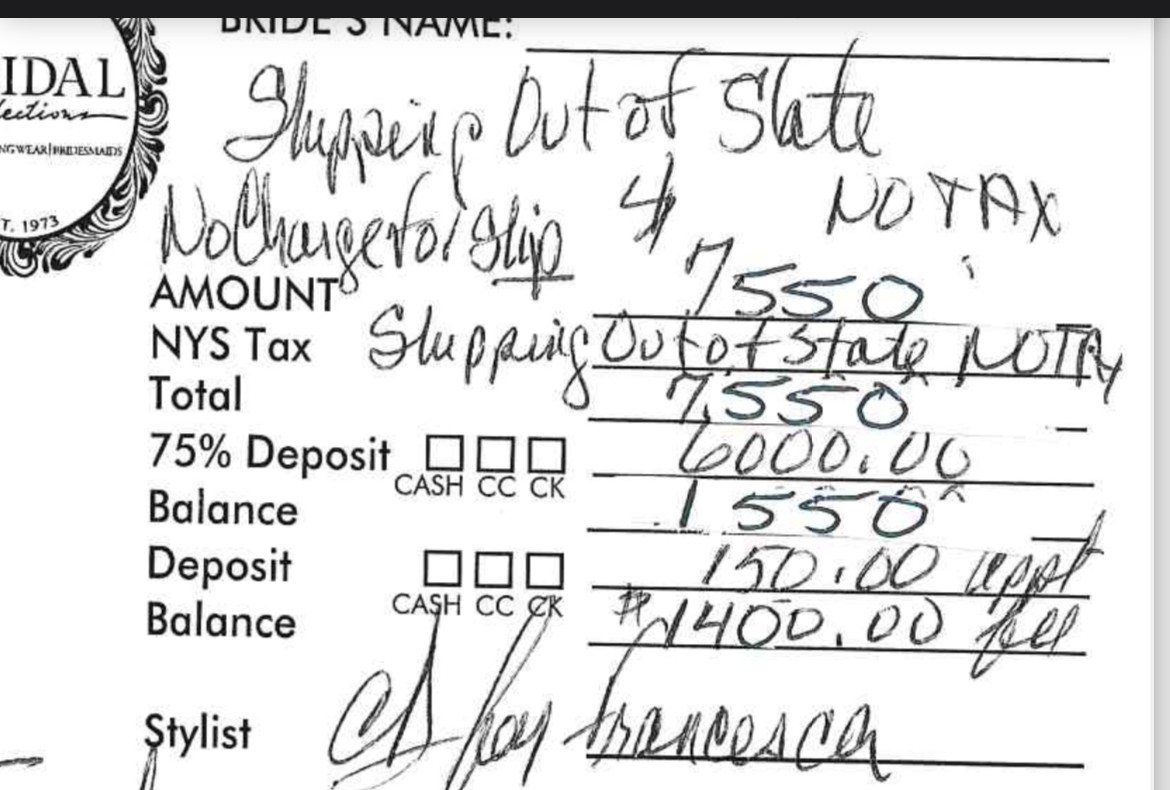 BRIDE'S NAME:
IDAL
lections
NGWEAR|BRIDESMAIDS
T. 1973
Shipping Out of State
No Charge for Ship $ NO TAX
AMOUNT 7550
NYS Tax Shipping Out of State NO TA
Total 7550
75% Deposit CASH CC CK 6000.00
Balance 1550
Deposit CASH CC CK 150.00 appt
Balance $1400.00 fee
Stylist Francesca